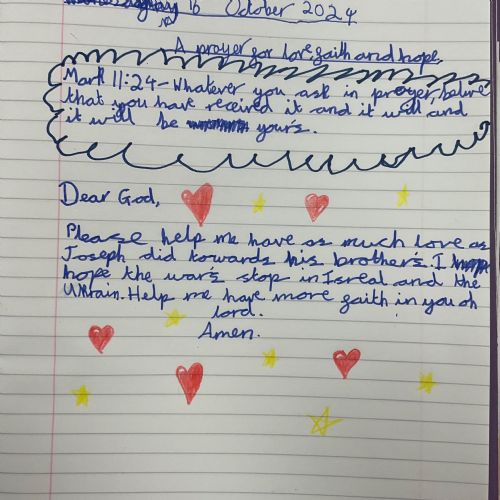 16 October 2024
A prayer for love faith and hope.
Mark 11:24 - Whatever you ask in prayer, believe
that you have received it and it will and
it will be your's.
Dear God,
Please help me have as much love as
Joseph did towards his brother's. I
hope the war's stop in Isreal and the
Ukrain. Help me have more faith in you oh
lord.
Amen.